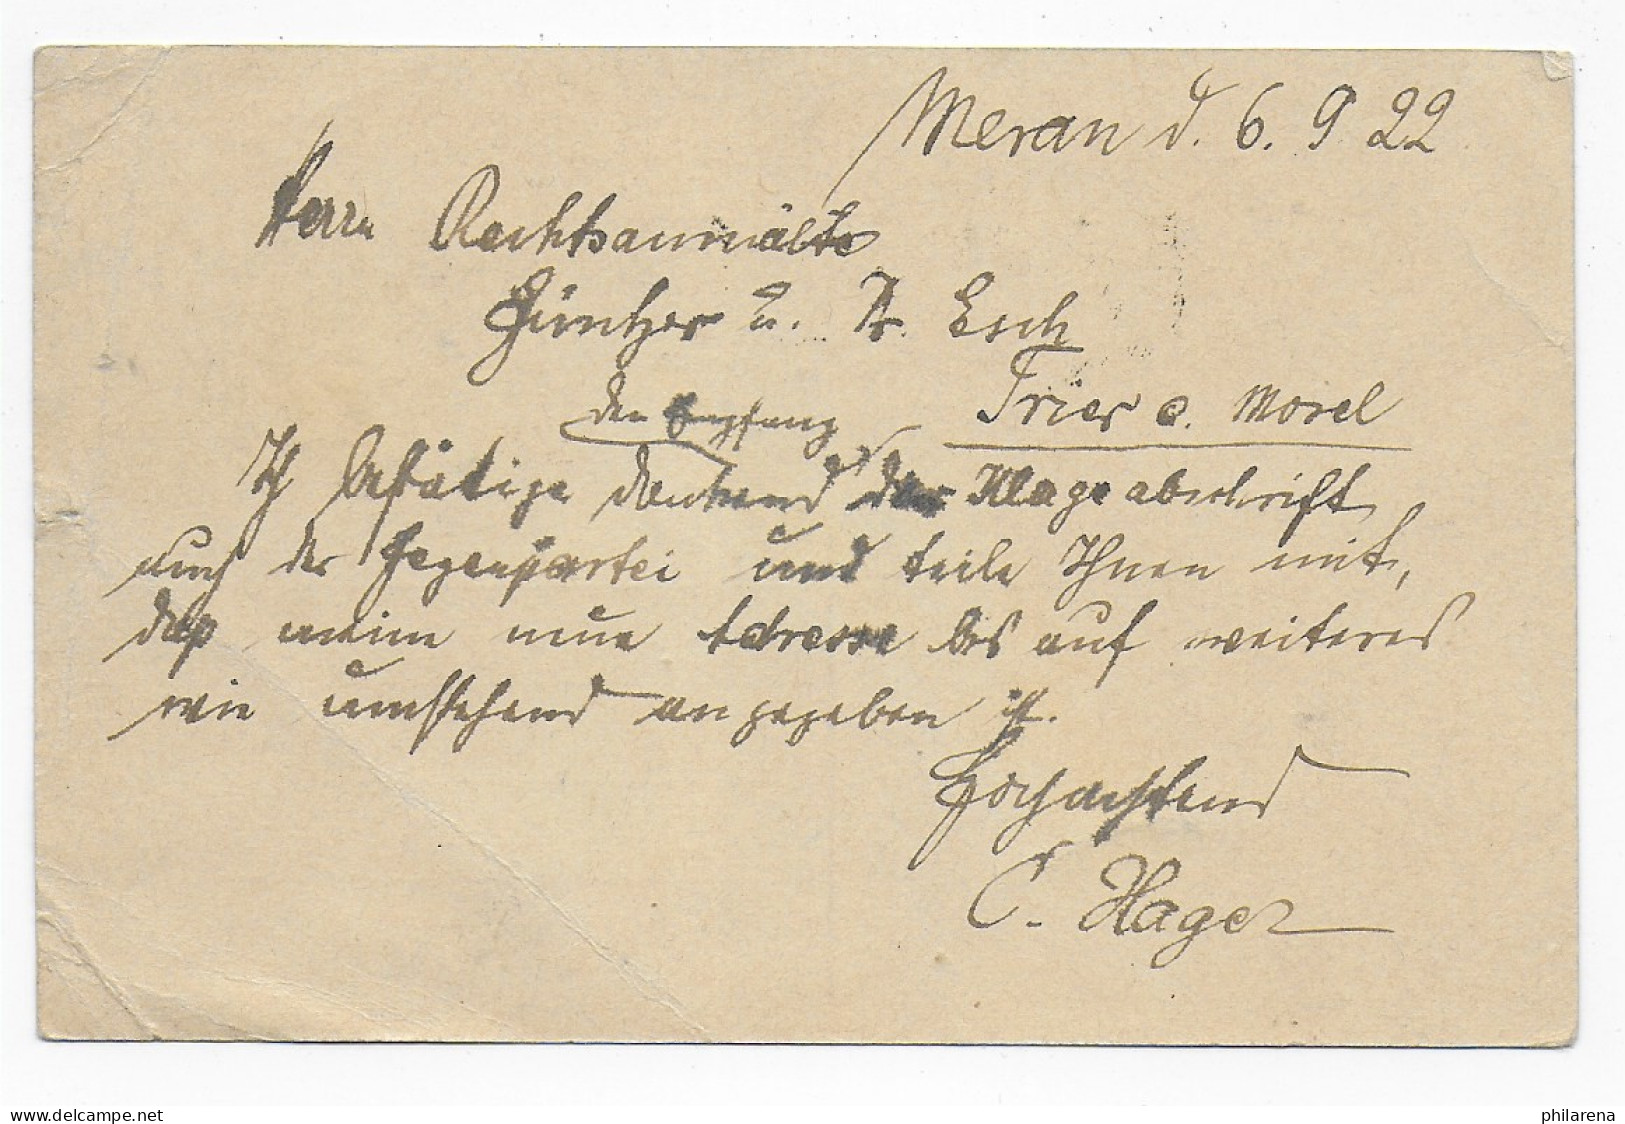 Meran d. 6. 9 22
Herrn Rechtsanwälte
Günther u. Dr. Esch
Trier a. Mosel
den Empfang
Ich bestätige dankend der Klageabschrift
auch der Gegenpartei und teile Ihnen mit,
daß meine neue Adresse bis auf weiteres
wie umstehend angegeben ist.
Hochachtend
C. Hager
delcampe.net
philarena